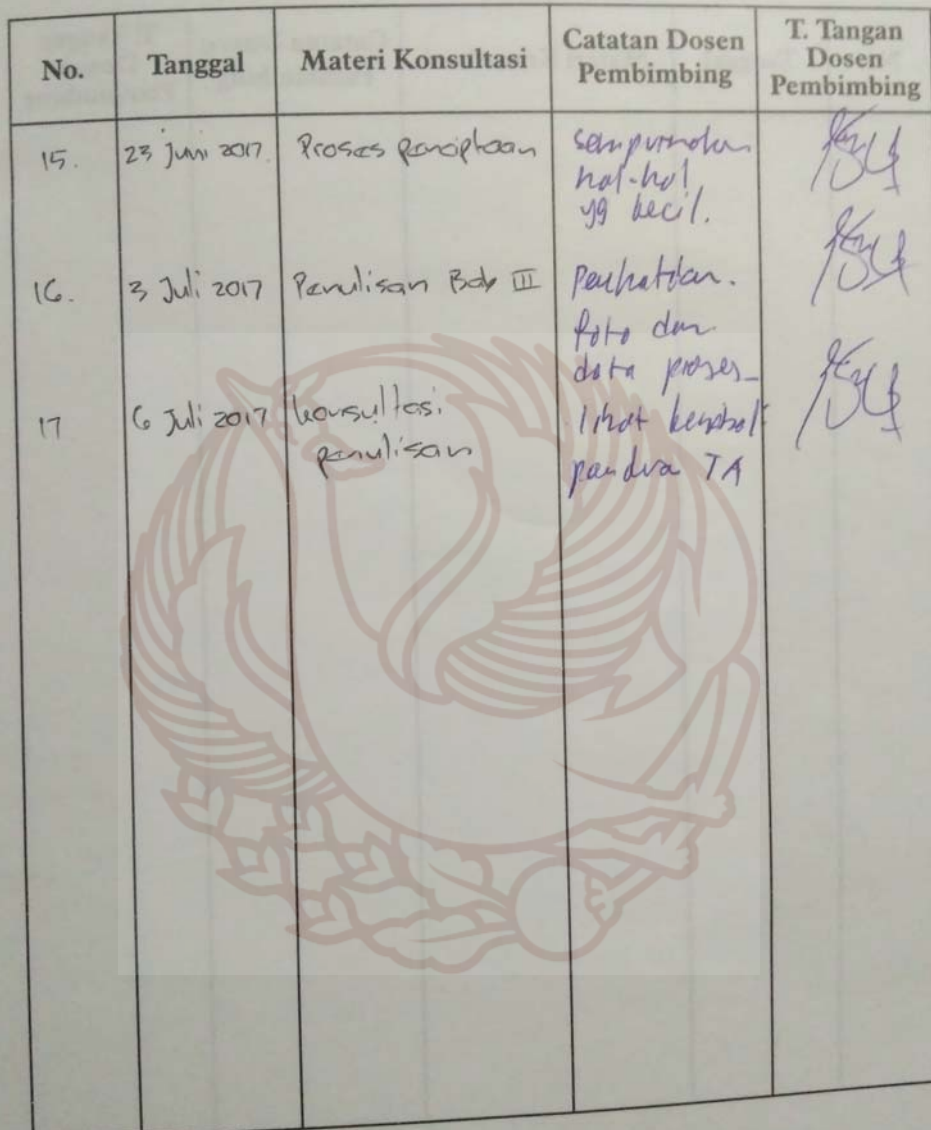 No.
Tanggal
Materi Konsultasi
Catatan Dosen
Pembimbing
T. Tangan
Dosen
Pembimbing
15.
23 Juni 2017.
Proses penciptaan
sempurnakan
hal-hal
yg kecil.
16.
3 Juli 2017
Penulisan Bab III
Perhatikan.
foto dan
data proses-
17
6 Juli 2017
konsultasi
penulisan
lihat kembali
panduan TA